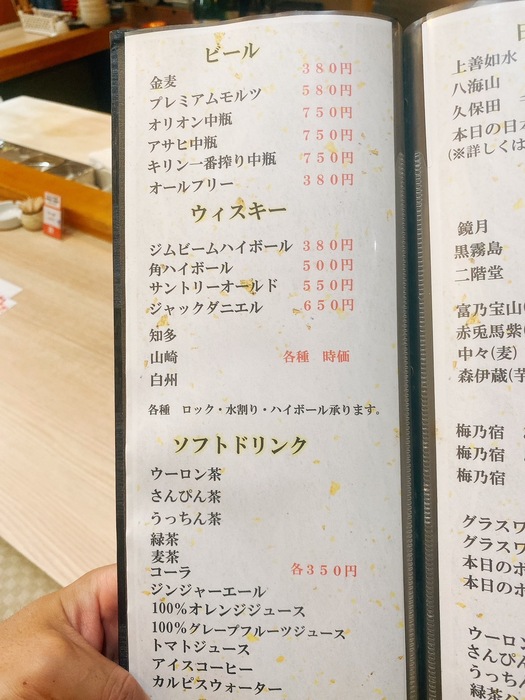 ビール
金麦 380円
プレミアムモルツ 580円
オリオン中瓶 750円
アサヒ中瓶 750円
キリン一番搾り中瓶 750円
オールフリー 380円
ウィスキー
ジムビームハイボール 380円
角ハイボール 500円
サントリーオールド 550円
ジャックダニエル 650円
知多
山崎 各種 時価
白州
各種 ロック・水割り・ハイボール承ります。
ソフトドリンク
ウーロン茶
さんぴん茶
うっちん茶
緑茶
麦茶
コーラ 各350円
ジンジャーエール
100%オレンジジュース
100%グレープフルーツジュース
トマトジュース
アイスコーヒー
カルピスウォーター
上善如水
八海山
久保田
本日の日本
(※詳しくは
鏡月
黒霧島
二階堂
富乃宝山(
赤兎馬紫(
中々(麦)
森伊蔵(芋
梅乃宿
梅乃宿
梅乃宿
グラスワ
グラスワ
本日のボ
本日のボ
ウーロン
さんぴん
うっちん
緑茶